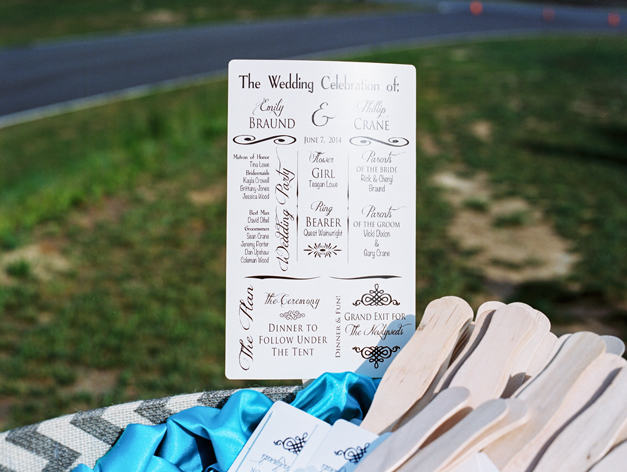 The Wedding Celebration of:
Emily
BRAUND
&
Phillip
CRANE
JUNE 7, 2014
Matron of Honor
Tina Lowe
Bridesmaids
Kayla Crowell
Brittany Jones
Jessica Wood
Best Man
David Dibel
Groomsmen
Sean Crane
Jeremy Porter
Dan Upshaw
Coleman Wood
Wedding Party
Flower
GIRL
Teagan Lowe
Ring
BEARER
Quest Wainwright
Parents
OF THE BRIDE
Rick & Cheryl
Braund
Parents
OF THE GROOM
Vicki Dixon
&
Gary Crane
The Plan
The Ceremony
DINNER TO
FOLLOW UNDER
THE TENT
DINNER & FUN!
GRAND EXIT FOR
The Newlyweds